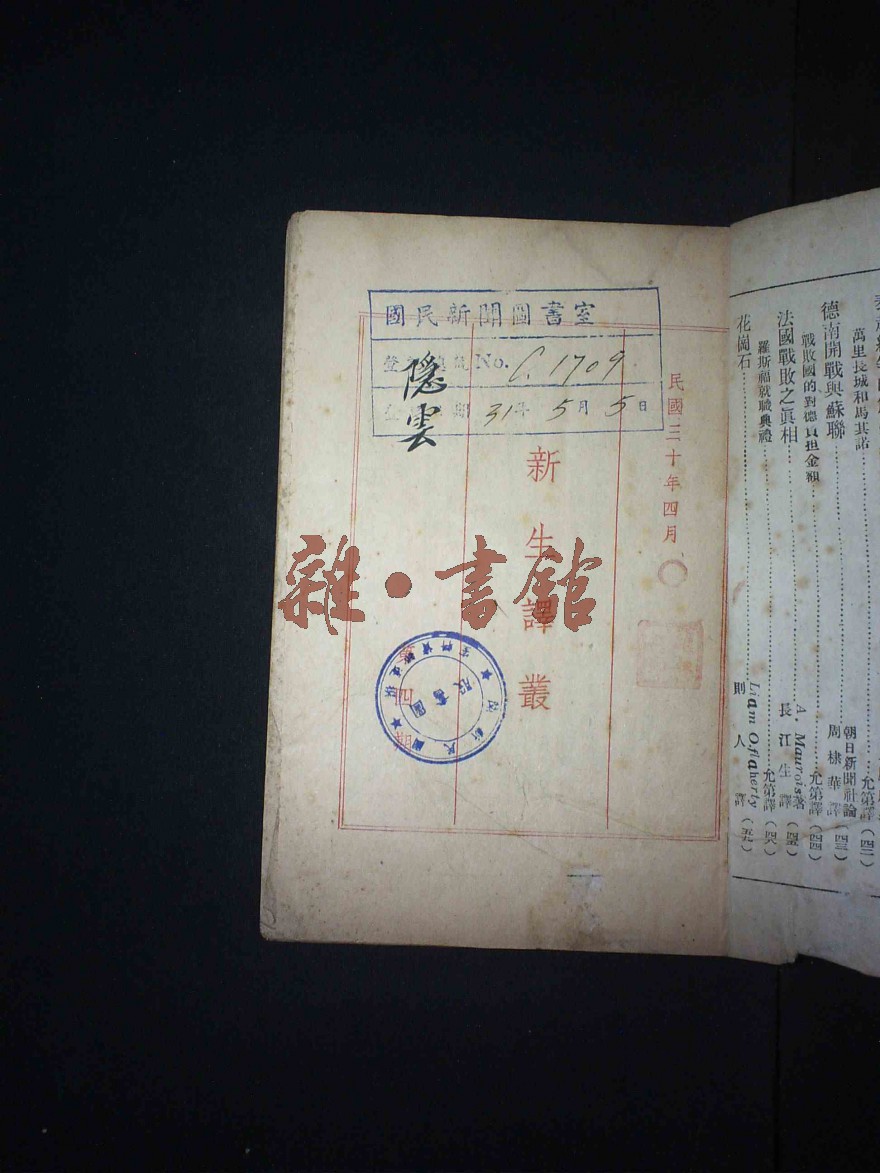 國民新聞圖書室
登 號 No. C. 1709.
登 期 31年 5月 5日
隱雲
民國三十年四月
新生譯叢
第四期
雜·書館
萬里長城和馬其諾……允第譯(四二)
朝日新聞社論
德南開戰與蘇聯……周棣華譯(四三)
戰敗國的對德負担金額……允第譯(四四)
A. Maurois著
法國戰敗之眞相……長江生譯(四五)
羅斯福就職典禮……允第譯(四六)
Liam O.flaherty
花崗石……則人譯(五一)